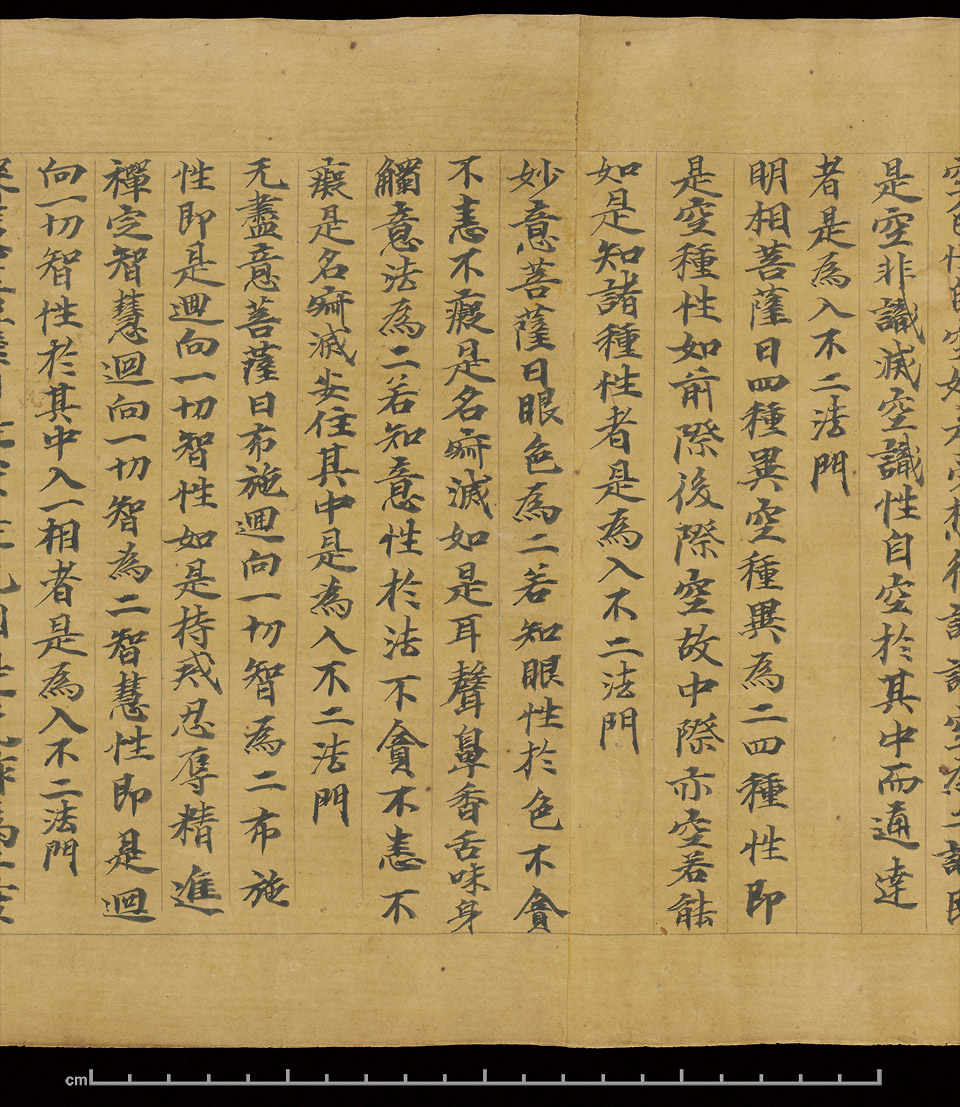 空色性自空如是受想行識識空為二識即
是空非識滅空識性自空於其中而通達
者是為入不二法門
明相菩薩曰四種異空種異為二四種性即
是空種性如前際後際空故中際亦空若能
如是知諸種性者是為入不二法門
妙意菩薩曰眼色為二若知眼性於色不貪
不恚不癡是名寂滅如是耳聲鼻香舌味身
觸意法為二若知意性於法不貪不恚不
癡是名寂滅安住其中是為入不二法門
无盡意菩薩曰布施迴向一切智為二布施
性即是迴向一切智性如是持戒忍辱精進
禪定智慧迴向一切智為二智慧性即是迴
向一切智性於其中入一相者是為入不二法門
cm